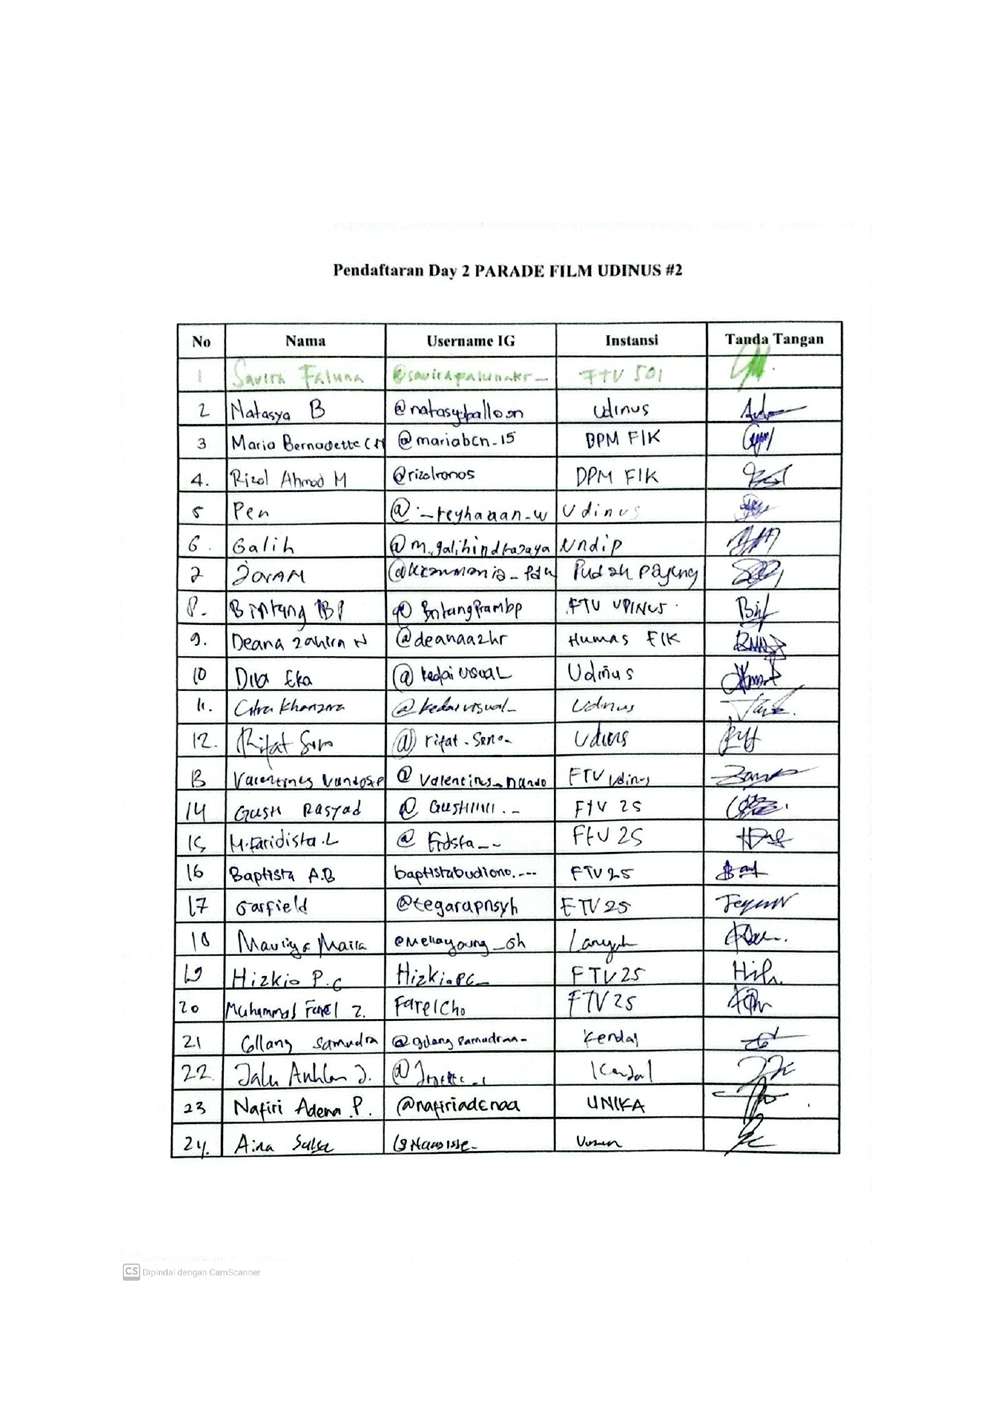 Pendaftaran Day 2 PARADE FILM UDINUS #2
No Nama Username IG Instansi Tanda Tangan
1 Savira Faluna FTV 501
2 Natasya B @natasyballoon Udinus
3 Maria Bernadette C N @mariabcn_15 DPM FIK
4. Rizal Ahmad M @rizalronos DPM FIK
5 Pen @._reyhaaan_w Udinus
6. Galih @m.galihindrajaya Undip
7 Pudak Payung
8. Bintang @Bntangprambp FTV UDINUS
9. Deana Zahira N @deanaazhr Humas FIK
10 Diva Eka @kedaivisual Udinus
11. Citra Khanzara @kedaivisual_ Udinus
12. Rifat Seno @rifat.seno- Udinus
13 Valentinus @valentinus_nando FTV Udinus
14 Gusti Rasyad @Gustiiiii._ FTV 25
15 M.Faridista.L @Frdsta__ FTV 25
16 Baptista A.B baptistabudiono.--- FTV 25
17 Garfield @tegarapnsyh FTV 25
18 Maulya Maira
19 Hizkia P.C HizkiaPC_ FTV 25
20 Muhammad Farel Z. Farelcho FTV 25
21 Gilang Samudra Kendal
22 Kendal
23 Nafiri Adena .P. @nafiriadenaa UNIKA
24. Aina Salsa
CS Dipindai dengan CamScanner